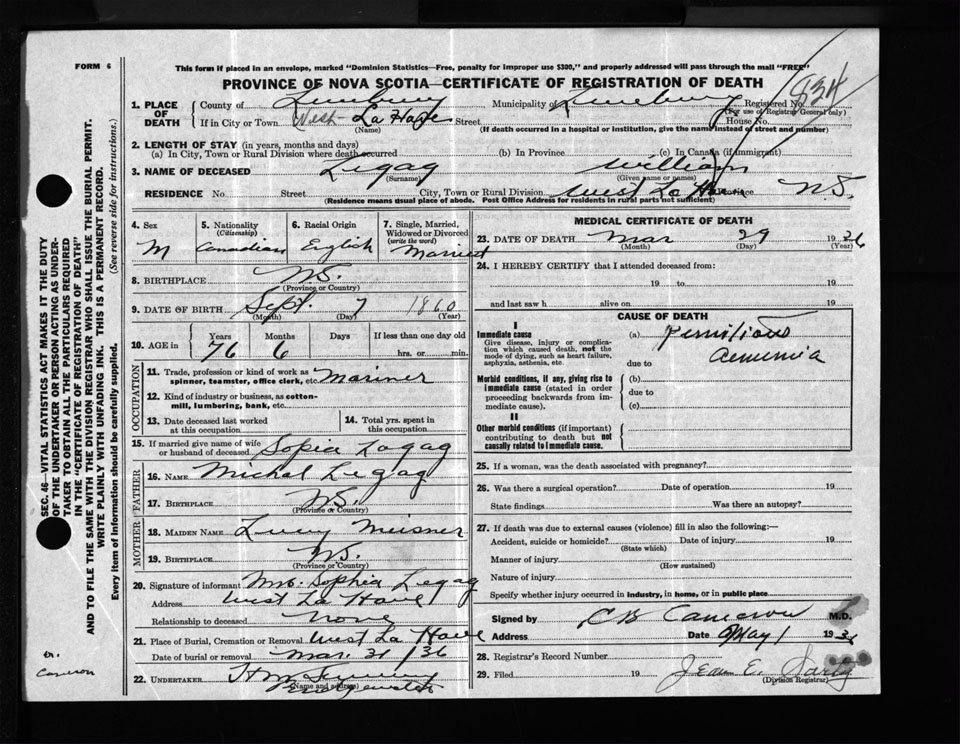 FORM 6
This form if placed in an envelope, marked "Dominion Statistics—Free, penalty for improper use $300," and properly addressed will pass through the mail "FREE"
PROVINCE OF NOVA SCOTIA—CERTIFICATE OF REGISTRATION OF DEATH
834
1. PLACE OF DEATH
County of Lunenburg Municipality of Lunenburg Registered No.
(For use of Registrar General only)
If in City or Town West La Have Street House No.
(Name) (If death occurred in a hospital or institution, give the name instead of street and number)
2. LENGTH OF STAY (in years, months and days)
(a) In City, Town or Rural Division where death occurred (b) In Province (c) In Canada (if immigrant)
3. NAME OF DECEASED Legag William
(Surname) (Given name or names)
RESIDENCE No Street City, Town or Rural Division West La Have Province NS.
(Residence means usual place of abode. Post Office Address for residents in rural parts not sufficient)
4. Sex M
5. Nationality (Citizenship) Canadian
6. Racial Origin English
7. Single, Married, Widowed or Divorced (write the word) Married
8. BIRTHPLACE N.S.
(Province or Country)
9. DATE OF BIRTH Sept. 7 1860
(Month) (Day) (Year)
10. AGE in Years Months Days If less than one day old
76 6 hrs. or min.
OCCUPATION
11. Trade, profession or kind of work as spinner, teamster, office clerk, etc. Mariner
12. Kind of industry or business, as cotton-mill, lumbering, bank, etc.
13. Date deceased last worked at this occupation
14. Total yrs. spent in this occupation
15. If married give name of wife or husband of deceased Sopia Lagag
FATHER
16. NAME Michal Legag
17. BIRTHPLACE N.S.
(Province or Country)
MOTHER
18. MAIDEN NAME Lucy Meisner
19. BIRTHPLACE N.S.
(Province or Country)
20. Signature of informant Mrs. Sophia Legag
Address West La Have
Relationship to deceased none
21. Place of Burial, Cremation or Removal West La Have
Date of burial or removal Mar. 31/36
22. UNDERTAKER
(Name and address) Bridgewater
MEDICAL CERTIFICATE OF DEATH
23. DATE OF DEATH Mar 29 1936
(Month) (Day) (Year)
24. I HEREBY CERTIFY that I attended deceased from:
19 to 19
and last saw h alive on 19
CAUSE OF DEATH
I
Immediate cause
Give disease, injury or complication which caused death, not the mode of dying, such as heart failure, asphyxia, asthenia, etc.
(a) Pernitious Aenemia
due to
Morbid conditions, if any, giving rise to immediate cause (stated in order proceeding backwards from immediate cause).
(b)
due to
(c)
II
Other morbid conditions (if important) contributing to death but not causally related to immediate cause.
25. If a woman, was the death associated with pregnancy?
26. Was there a surgical operation? Date of operation 19
State findings Was there an autopsy?
27. If death was due to external causes (violence) fill in also the following:—
Accident, suicide or homicide? Date of injury 19
(State which)
Manner of injury
(How sustained)
Nature of injury
Specify whether injury occurred in industry, in home, or in public place
Signed by C B Cameron M.D.
Address Date May 1 1936
28. Registrar's Record Number
29. Filed 19 Jean E.
(Division Registrar)
SEC. 46—VITAL STATISTICS ACT MAKES IT THE DUTY
OF THE UNDERTAKER OR PERSON ACTING AS UNDER-
TAKER TO OBTAIN ALL THE PARTICULARS REQUIRED
IN THE "CERTIFICATE OF REGISTRATION OF DEATH"
AND TO FILE THE SAME WITH THE DIVISION REGISTRAR WHO SHALL ISSUE THE BURIAL PERMIT.
WRITE PLAINLY WITH UNFADING INK. THIS IS A PERMANENT RECORD.
Every item of information should be carefully supplied. (See reverse side for instructions.)
Dr. Cameron